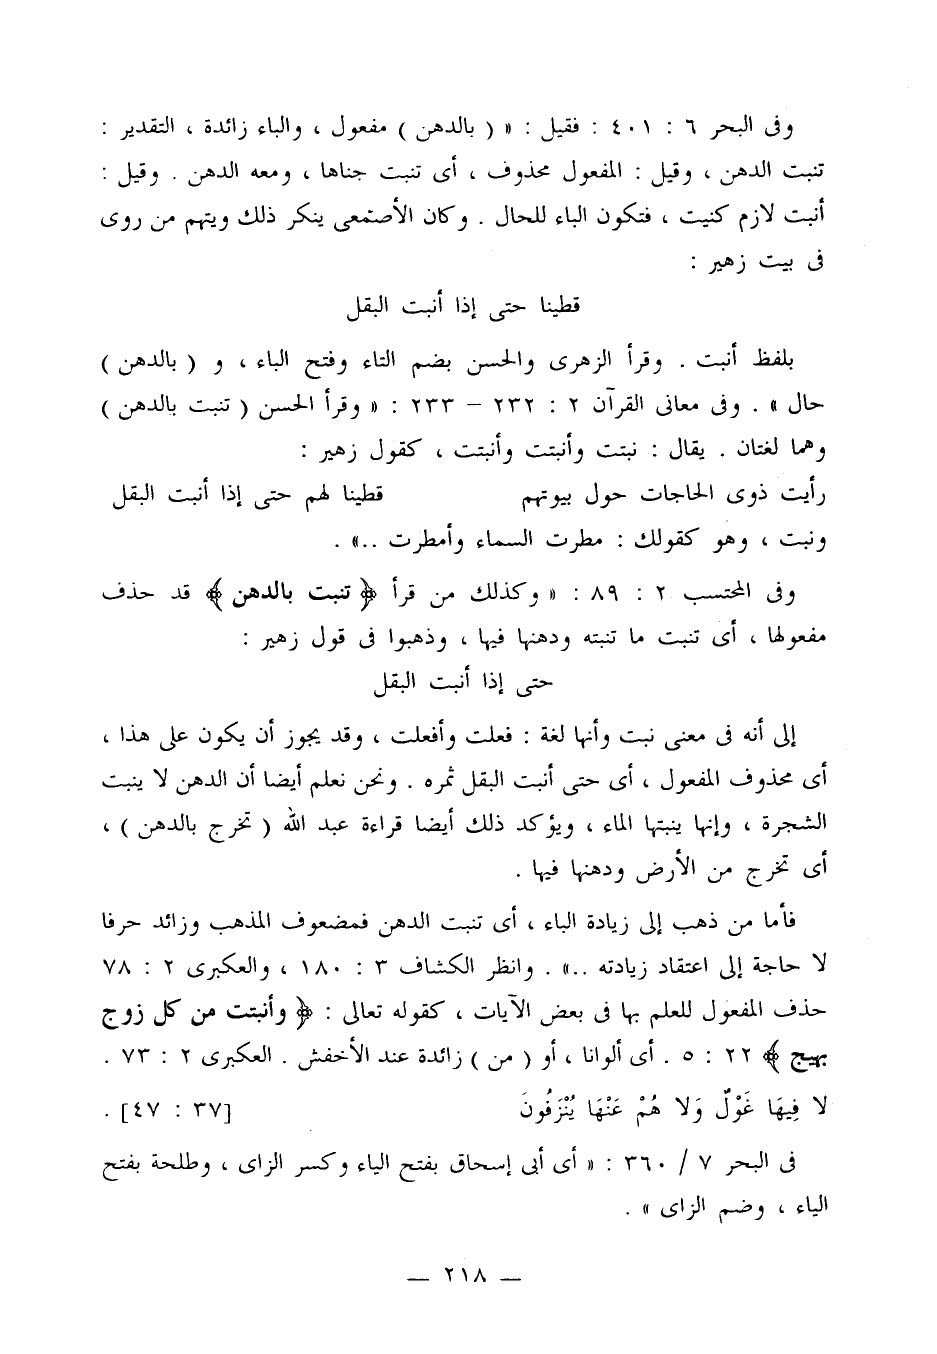 وفى البحر ٦ : ٤٠١ : فقيل : « ( بالدهن ) مفعول ، والباء زائدة ، التقدير :
تنبت الدهن ، وقيل : المفعول محذوف ، أى تنبت جناها ، ومعه الدهن . وقيل :
أنبت لازم كنبت ، فتكون الباء للحال . وكان الأصمعى ينكر ذلك ويتهم من روى
فى بيت زهير :
قطينا حتى إذا أنبت البقل
بلفظ أنبت . وقرأ الزهرى والحسن بضم التاء وفتح الباء ، و ( بالدهن )
حال » . وفى معانى القرآن ٢ : ٢٣٢ – ٢٣٣ : « وقرأ الحسن ( تنبت بالدهن )
وهما لغتان . يقال : نبتت وأنبتت وأنبتت ، كقول زهير :
رأيت ذوى الحاجات حول بيوتهم قطينا لهم حتى إذا أنبت البقل
ونبت ، وهو كقولك : مطرت السماء وأمطرت ..» .
وفى المحتسب ٢ : ٨٩ : « وكذلك من قرأ ﴿ تنبت بالدهن ﴾ قد حذف
مفعولها ، أى تنبت ما تنبته ودهنها فيها ، وذهبوا فى قول زهير :
حتى إذا أنبت البقل
إلى أنه فى معنى نبت وأنها لغة : فعلت وأفعلت ، وقد يجوز أن يكون على هذا ،
أى محذوف المفعول ، أى حتى أنبت البقل ثمره . ونحن نعلم أيضا أن الدهن لا ينبت
الشجرة ، وإنها ينبتها الماء ، ويؤكد ذلك أيضا قراءة عبد الله ( تخرج بالدهن ) ،
أى تخرج من الأرض ودهنها فيها .
فأما من ذهب إلى زيادة الباء ، أى تنبت الدهن فمضعوف المذهب وزائد حرفا
لا حاجة إلى اعتقاد زيادته ..» . وانظر الكشاف ٣ : ١٨٠ ، والعكبرى ٢ : ٧٨
حذف المفعول للعلم بها فى بعض الآيات ، كقوله تعالى : ﴿ وأنبتت من كل زوج
بهيج ﴾ ٢٢ : ٥ . أى ألوانا ، أو ( من ) زائدة عند الأخفش . العكبرى ٢ : ٧٣ .
لا فِيهَا غَوْلٌ وَلا هُمْ عَنْهَا يُنْزَفُونَ [٣٧ : ٤٧] .
فى البحر ٧ / ٣٦٠ : « أى أبى إسحاق بفتح الياء وكسر الزاى ، وطلحة بفتح
الياء ، وضم الزاى » .
— ٢١٨ —